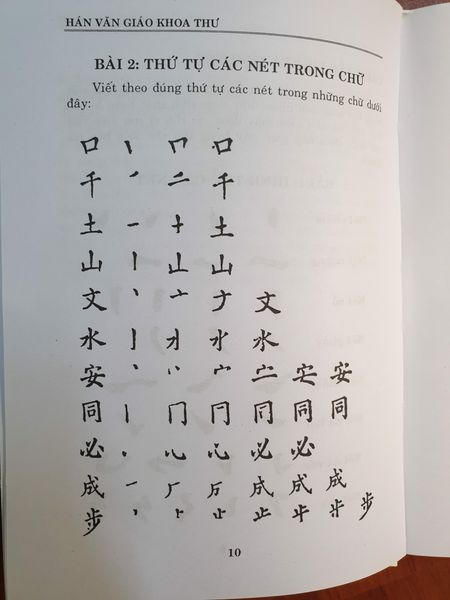 HÁN VĂN GIÁO KHOA THƯ
BÀI 2: THỨ TỰ CÁC NÉT TRONG CHỮ
Viết theo đúng thứ tự các nét trong những chữ dưới
đây:
口 丶 冖 口
千 ㇒ 二 千
土 一 十 土
山 丨 山 山
文 丶 亠 ナ 文
水 亅 水
安 丶 宀 安
同 丨 冂 同 同
必 心 心 必 必
成 一 厂 成 成 成
步 丶 止 步
10